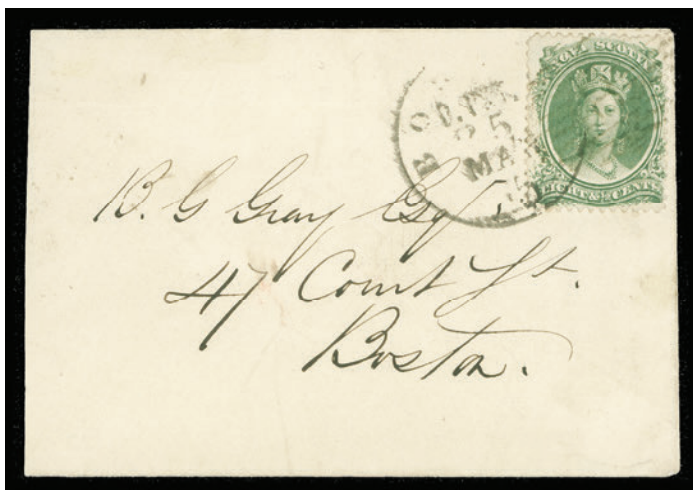 NOVA SCOTIA
EIGHT & ½ CENTS
25
MAR
B. G Gray Esqr.
47 Court St.
Boston.